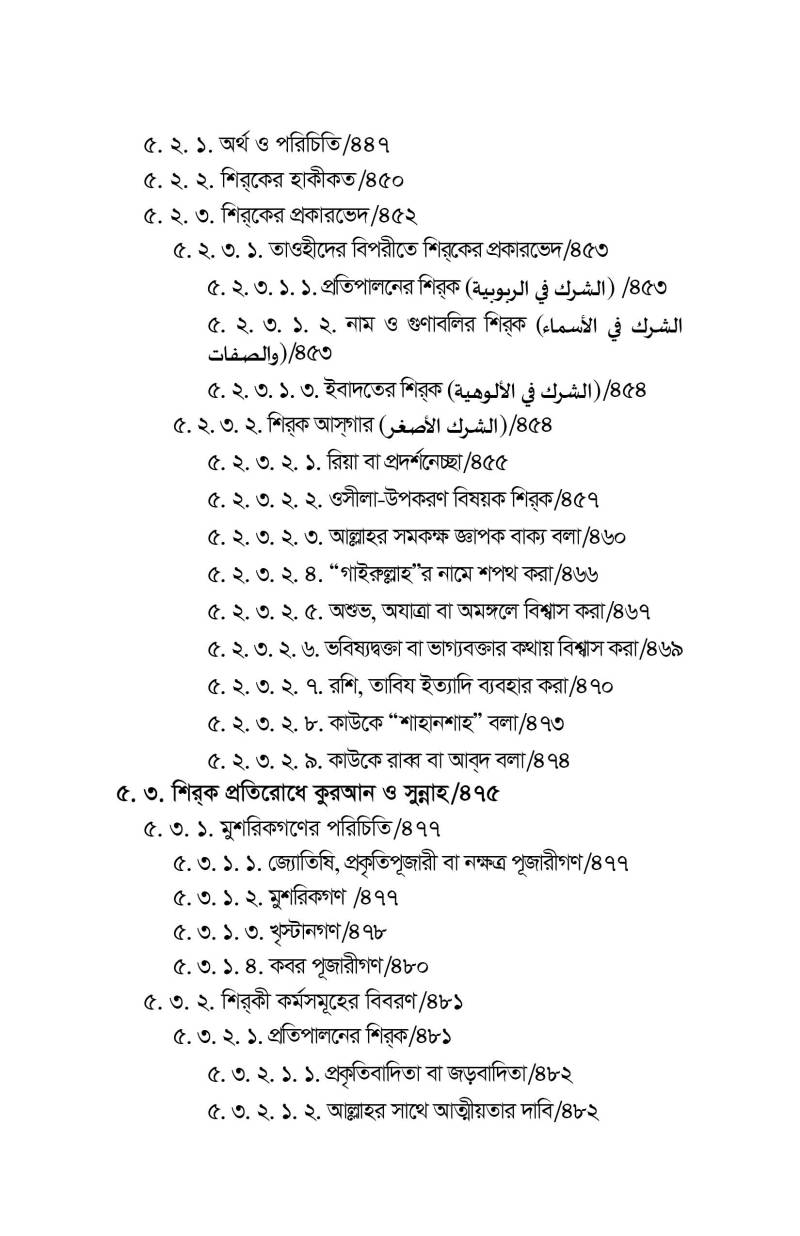 ৫. ২. ১. অর্থ ও পরিচিতি/৪৪৭
৫. ২. ২. শির্‌কের হাকীকত/৪৫০
৫. ২. ৩. শির্‌কের প্রকারভেদ/৪৫২
৫. ২. ৩. ১. তাওহীদের বিপরীতে শির্‌কের প্রকারভেদ/৪৫৩
৫. ২. ৩. ১. ১. প্রতিপালনের শির্‌ক (الشرك في الربوبية) /৪৫৩
৫. ২. ৩. ১. ২. নাম ও গুণাবলির শির্‌ক (الشرك في الأسماء
والصفات)/৪৫৩
৫. ২. ৩. ১. ৩. ইবাদতের শির্‌ক (الشرك في الألوهية)/৪৫৪
৫. ২. ৩. ২. শির্‌ক আস্‌গার (الشرك الأصغر)/৪৫৪
৫. ২. ৩. ২. ১. রিয়া বা প্রদর্শনেচ্ছা/৪৫৫
৫. ২. ৩. ২. ২. ওসীলা-উপকরণ বিষয়ক শির্‌ক/৪৫৭
৫. ২. ৩. ২. ৩. আল্লাহর সমকক্ষ জ্ঞাপক বাক্য বলা/৪৬০
৫. ২. ৩. ২. ৪. “গাইরুল্লাহ”র নামে শপথ করা/৪৬৬
৫. ২. ৩. ২. ৫. অশুভ, অযাত্রা বা অমঙ্গলে বিশ্বাস করা/৪৬৭
৫. ২. ৩. ২. ৬. ভবিষ্যদ্বক্তা বা ভাগ্যবক্তার কথায় বিশ্বাস করা/৪৬৯
৫. ২. ৩. ২. ৭. রশি, তাবিয ইত্যাদি ব্যবহার করা/৪৭০
৫. ২. ৩. ২. ৮. কাউকে “শাহানশাহ” বলা/৪৭৩
৫. ২. ৩. ২. ৯. কাউকে রাব্ব বা আব্‌দ বলা/৪৭৪
৫. ৩. শির্‌ক প্রতিরোধে কুরআন ও সুন্নাহ/৪৭৫
৫. ৩. ১. মুশরিকগণের পরিচিতি/৪৭৭
৫. ৩. ১. ১. জ্যোতিষি, প্রকৃতিপূজারী বা নক্ষত্র পূজারীগণ/৪৭৭
৫. ৩. ১. ২. মুশরিকগণ /৪৭৭
৫. ৩. ১. ৩. খৃস্টানগণ/৪৭৮
৫. ৩. ১. ৪. কবর পূজারীগণ/৪৮০
৫. ৩. ২. শির্‌কী কর্মসমূহের বিবরণ/৪৮১
৫. ৩. ২. ১. প্রতিপালনের শির্‌ক/৪৮১
৫. ৩. ২. ১. ১. প্রকৃতিবাদিতা বা জড়বাদিতা/৪৮২
৫. ৩. ২. ১. ২. আল্লাহর সাথে আত্মীয়তার দাবি/৪৮২